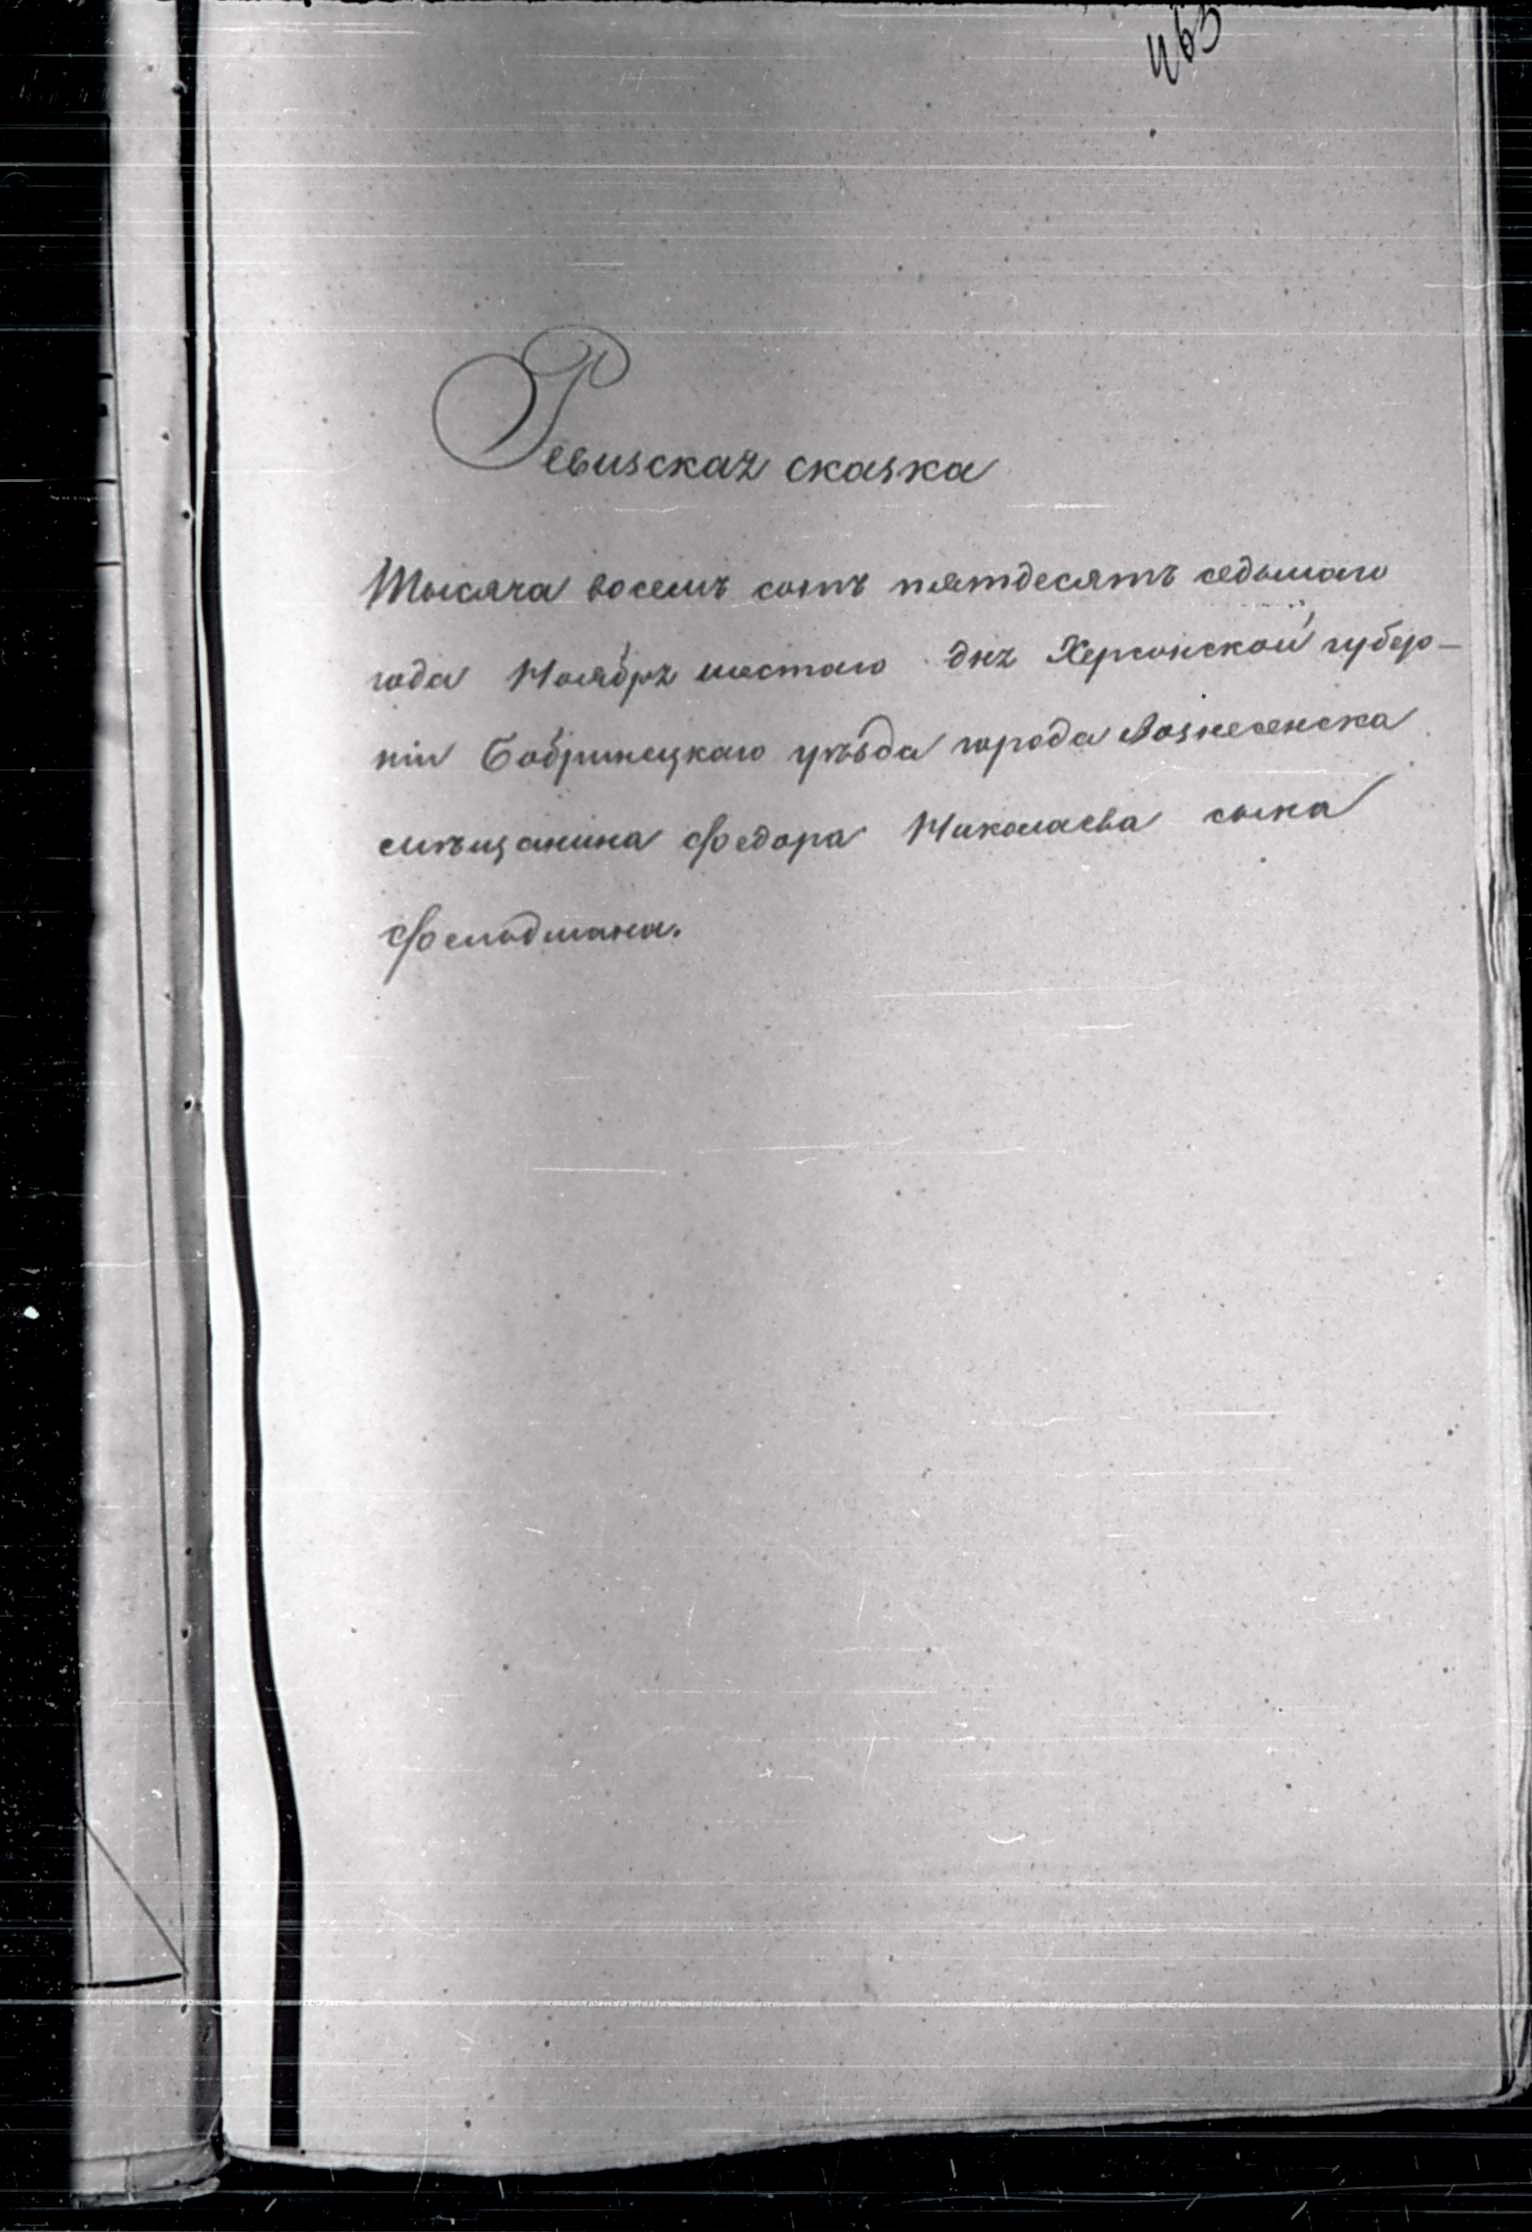 463
Ревизская сказка
Тысяча восемъ сотъ пятдесятъ седьмаго
года Ноября шестаго дня Херсонской губер-
ніи Бобринецкаго уѣзда города Вознесенска
мѣщанина Федора Николаева сына
Фельдмана.